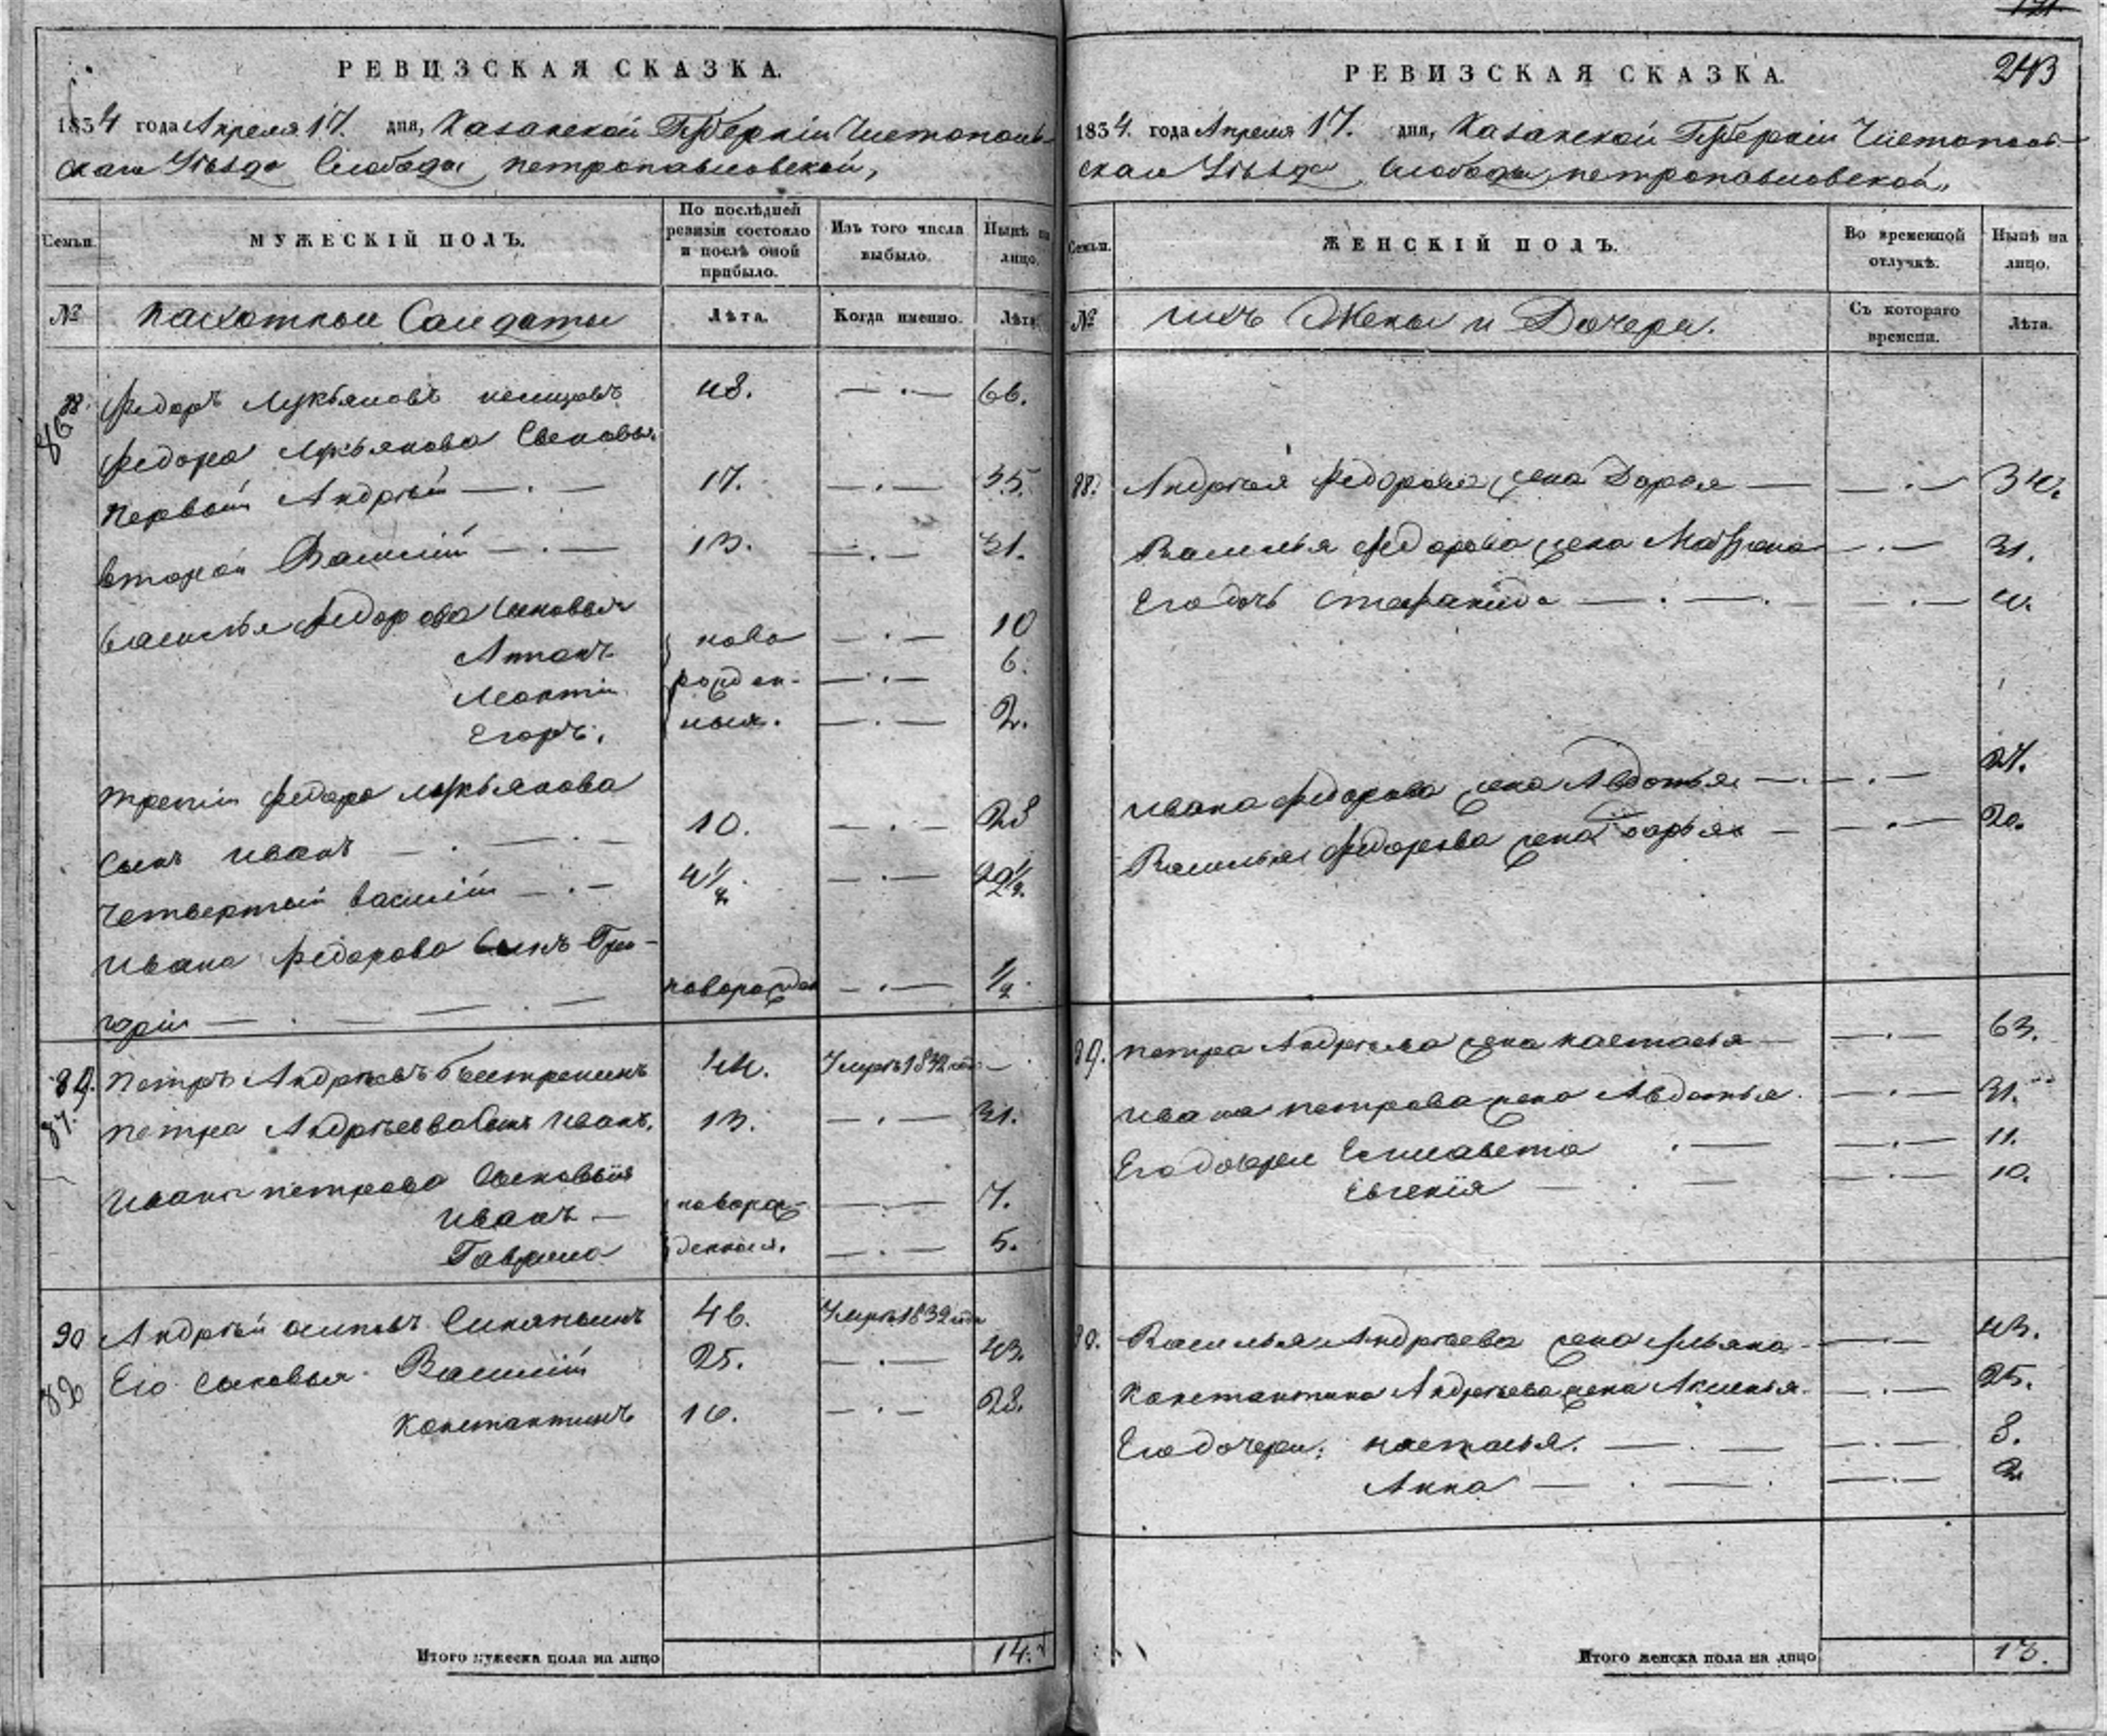 РЕВИЗСКАЯ СКАЗКА.
1834 года Апреля 17. дня, Казанской Губернiи Чистополь-
скаго Уѣзда Слободы петропавловской,
Семьи.
МУЖЕСКIЙ ПОЛЪ.
По послѣдней ревизiи состояло и послѣ оной прибыло.
Изъ того числа выбыло.
Нынѣ на лицо.
№
пахотные Салдаты
Лѣта.
Когда именно.
Лѣта
88. Федоръ Лукьяновъ 48. 66.
86
Федора Лукьянова Сыновья
первый Андрѣй 17. 35.
второй Василiй 13. 31.
василья Федорова Сыновья
Антонъ ново 10
Леонтiи рожден- 6.
Егоръ. ныя. 2.
третiи Федора лукьянова
Сынъ иванъ 10. 28
четвертый василiй 4 1/2 22 1/2.
ивана Федорова Сынъ Гри-
горiи новорожден 1/2
89. петръ Андрѣевъ 44. Умеръ 1832 года
87.
петра Андрѣева Сынъ иванъ. 13. 31.
ивана петрова Сыновья
иванъ новорож- 7.
Гаврила денныя. 5.
90 Андрѣй осиповъ 46. Умеръ 1832 года
Его Сыновья Василiй 25. 43.
Константинъ 10. 28.
Итого мужеска пола на лицо 14.
243
РЕВИЗСКАЯ СКАЗКА.
1834. года Апреля 17. дня, Казанской Губернiи Чистополь-
скаго Уѣзда Слободы петропавловской,
Семьи.
ЖЕНСКIЙ ПОЛЪ.
Во временной отлучкѣ.
Нынѣ на лицо.
№
ихъ Жены и Дочери.
Съ котораго времени.
Лѣта.
88. Андрѣя Федорова жена Дарья 34.
Василья Федорова жена Матрена 31.
Его дочь Стефанида 4.
ивана Федорова жена Авдотья 27.
Василья Федорова жена дарья 20.
89. петра Андрѣева жена настасья 63.
ивана петрова жена Авдотья 31.
Его дочери Елисавета 11.
Евгенiя 10.
90. Василья Андрѣева жена ульяна 43.
Константина Андрѣева жена Аксинья 25.
Его дочери: настасья. 8.
Анна 2
Итого женска пола на лицо 13.